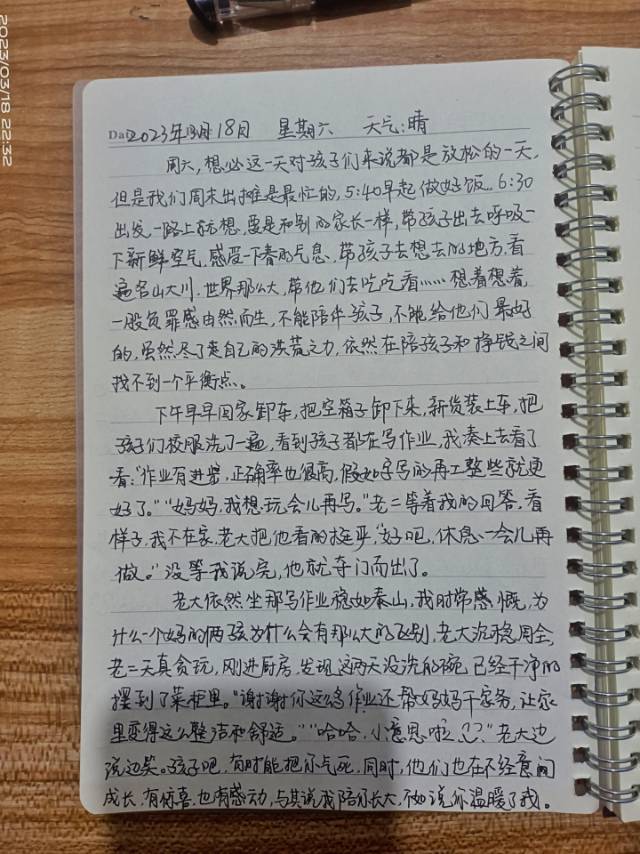 2023/03/18 22:32
Date 2023年3月18日 星期六 天气:晴
周六,想必这一天对孩子们来说都是放松的一天,
但是我们周末出摊是最忙的,5:40早起做好饭,6:30
出发,一路上就想,要是和别的家长一样,带孩子出去呼吸一
下新鲜空气,感受一下春的气息,带孩子去想去的地方,看
遍名山大川,世界那么大,带他们去吃吃看看……想着想着,
一股负罪感由然而生,不能陪伴孩子,不能给他们最好
的,虽然尽了自己的洪荒之力,依然在陪孩子和挣钱之间
找不到一个平衡点。
下午早早回家卸车,把空箱子卸下来,新货装上车,把
孩子们校服洗了一遍,看到孩子都在写作业,我凑上去看了
看:"作业有进步,正确率也很高,假如字写的再工整些就更
好了。""妈妈,我想玩会儿再写。"老二等着我的回答,看
样子,我不在家,老大把他看的挺严,"好吧,休息一会儿再
做。"没等我说完,他就夺门而出了。
老大依然坐那写作业稳如泰山,我时常感慨,为
什么一个妈的俩孩为什么会有那么大的区别,老大沉稳周全,
老二天真贪玩,刚进厨房,发现这两天没洗的碗,已经干净的
摆到了菜柜里。"谢谢你这么多作业还帮妈妈干家务,让家
里变得这么整洁和舒适。""哈哈,小意思啦"老大边
说边笑。孩子吧,有时能把你气死,同时,他们也在不经意间
成长,有惊喜,也有感动,与其说我陪你长大,不如说你温暖了我。